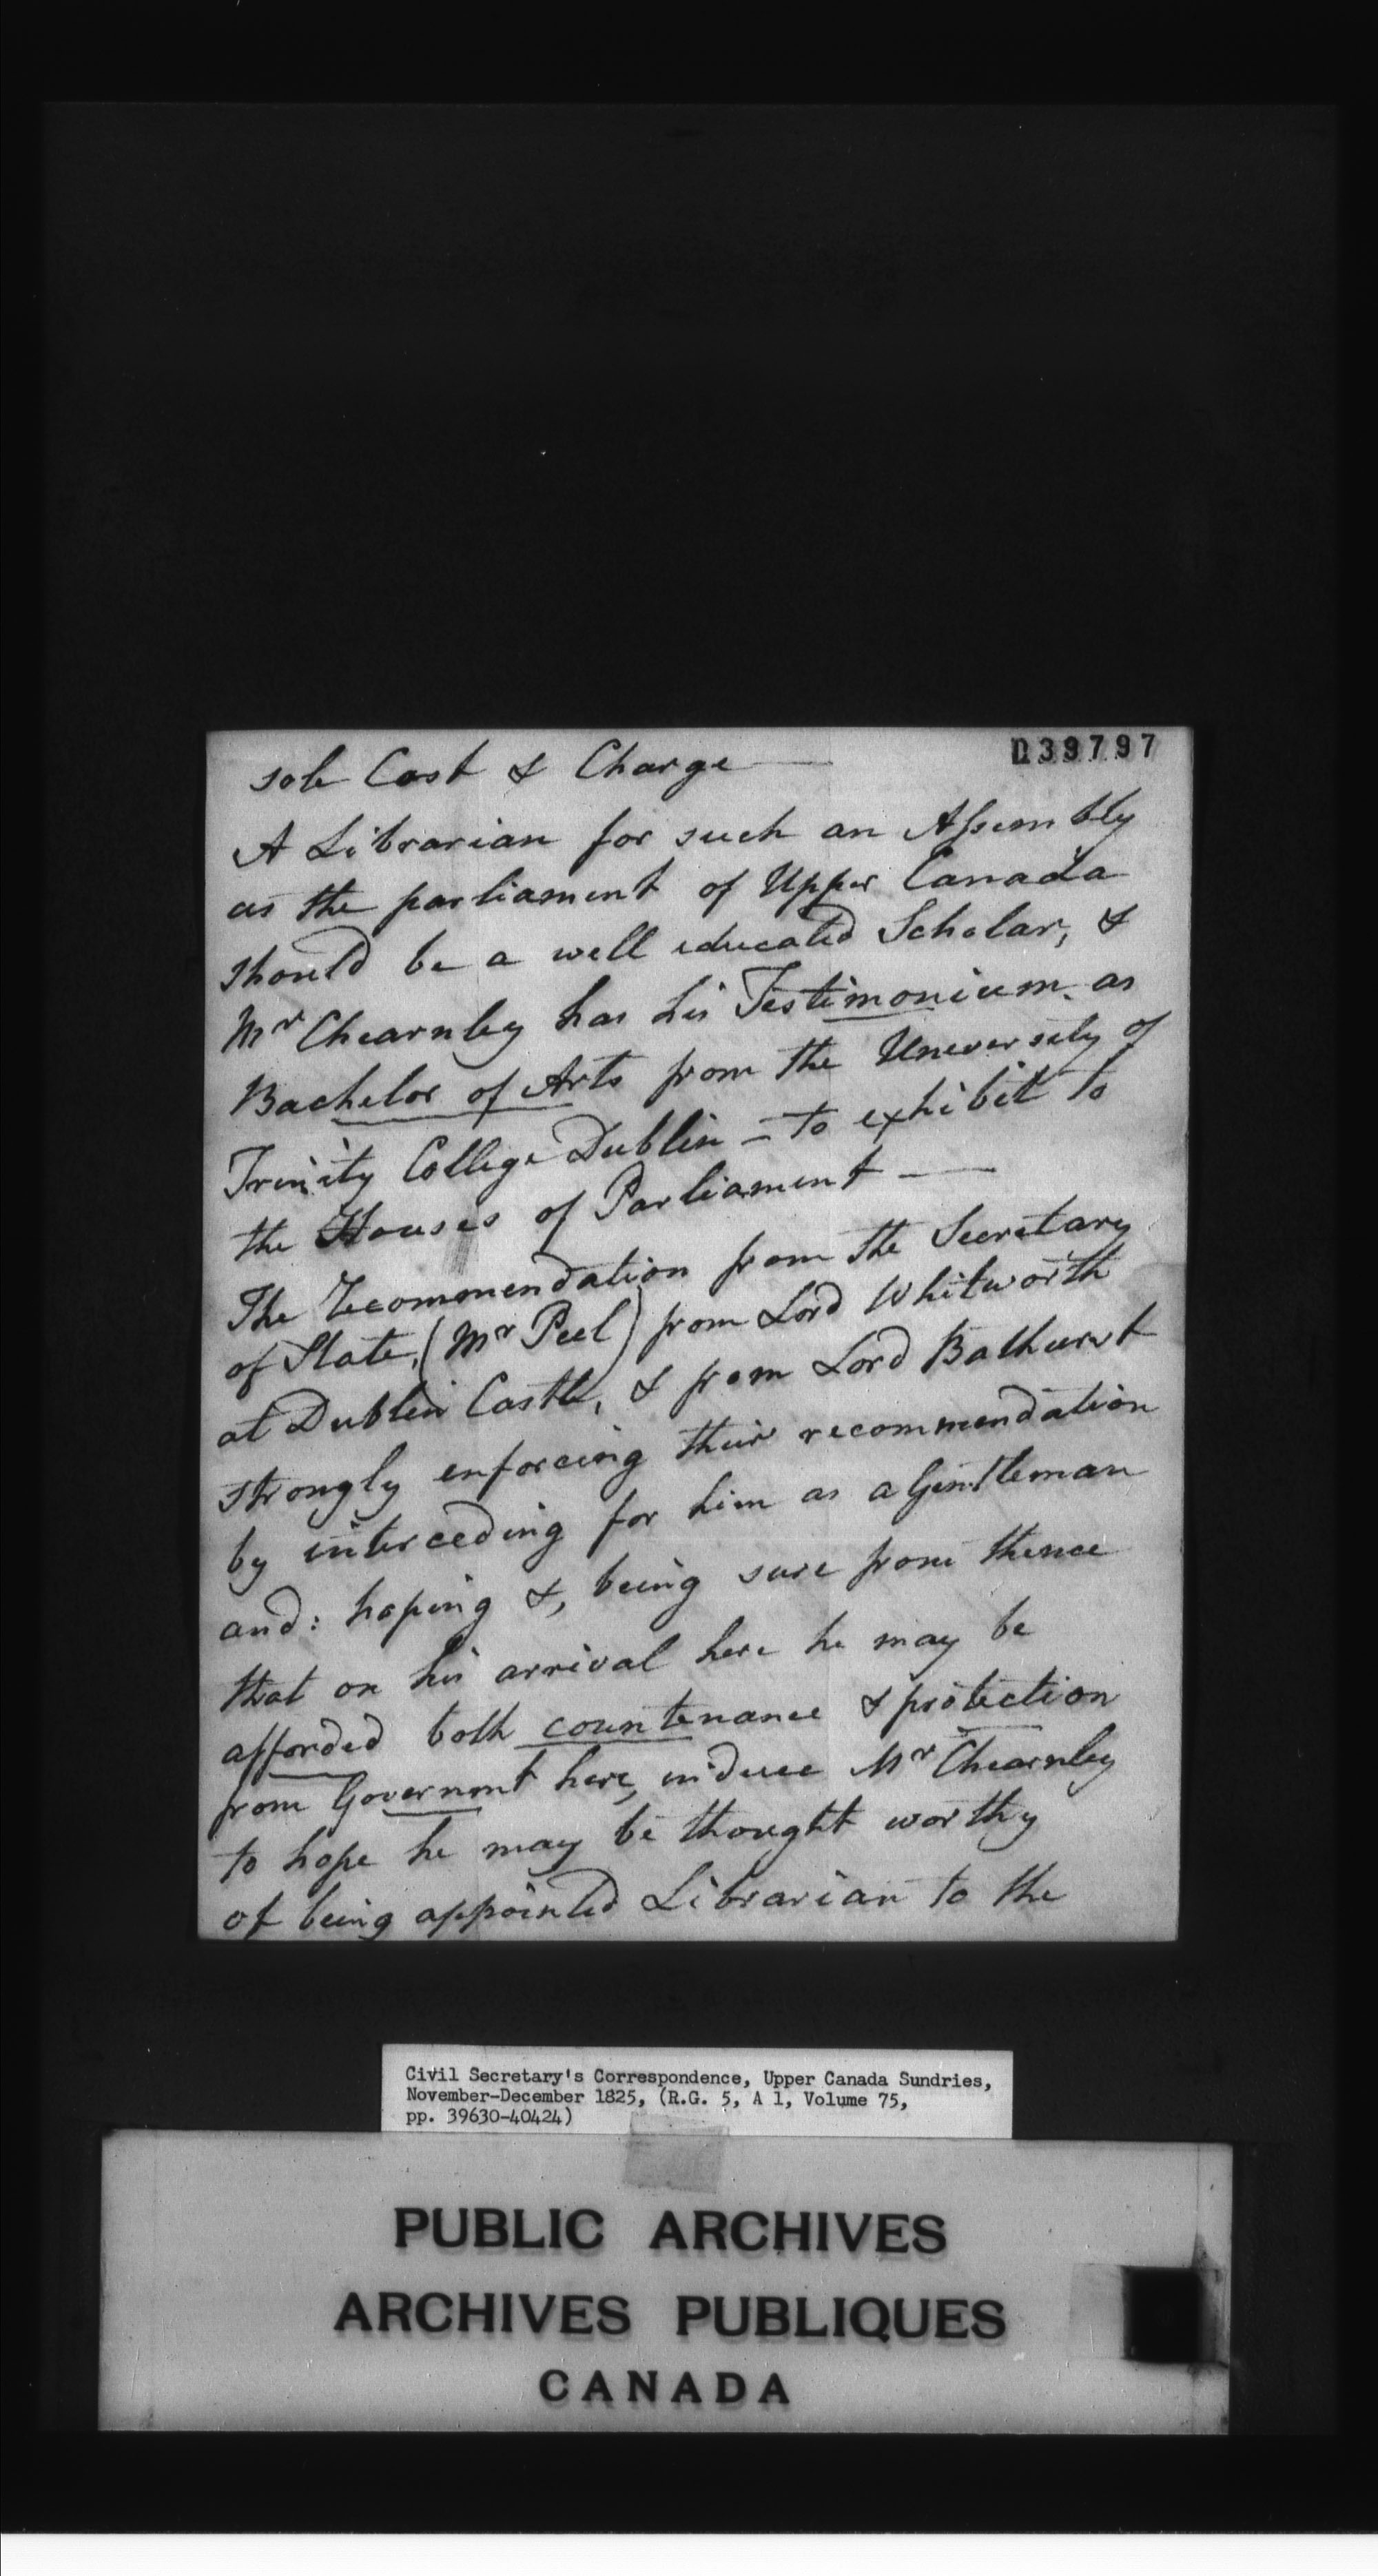 039797
sole Cost & Charge —
A Librarian for such an Assembly
as the parliament of Upper Canada
should be a well educated Scholar, &
Mr Chearnley has his Testimonium as
Bachelor of Arts from the University of
Trinity College Dublin – to exhibit to
the Houses of Parliament — —
The Recommendation from the Secretary
of State, (Mr Peel) from Lord Whitworth
at Dublin Castle, & from Lord Bathurst
strongly enforcing their recommendation
by interceding for him as a Gentleman
and: hoping &, being sure from thence
that on his arrival here he may be
afforded both countenance & protection
from Governmt here, induce Mr Chearnley
to hope he may be thought worthy
of being appointed Librarian to the
Civil Secretary's Correspondence, Upper Canada Sundries,
November-December 1825, (R.G. 5, A 1, Volume 75,
pp. 39630-40424)
PUBLIC ARCHIVES
ARCHIVES PUBLIQUES
CANADA